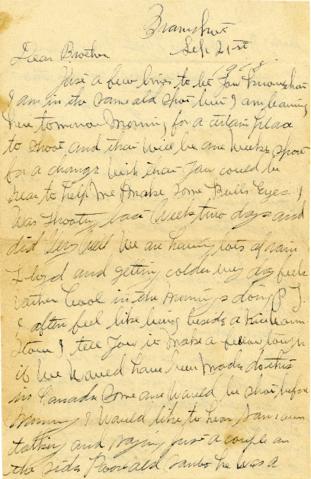 Bramshott
Sep 21st
1918
Dear Brother
Just a few lines to let you know that
I am in the same old spot but I am leaving
here tomorrow morning for a certain place
to shoot and there will be one weeks sport
for a change wish that you could be
near to help me make some Bulls Eyes I
was shooting last week two days and
did very well We are having lots of rain
Lloyd and getting colder every day feels
rather cool in the mornings doing P.T.
I often feel like being beside a
stove I tell you it makes a fellow laugh
if we would have been made do this
in Canada some one would be shot before
morning I would like to hear
talking and saying just a couple on
the side Poor old he was a